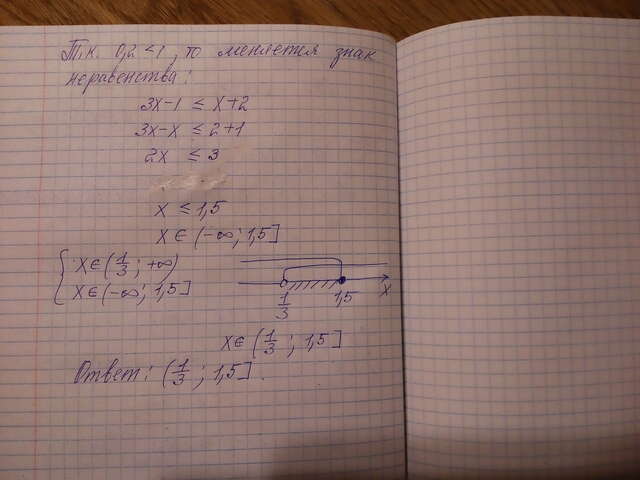 Т.к. 0,2 < 1, то меняется знак
неравенства:
3x-1 ≤ x+2
3x-x ≤ 2+1
2x ≤ 3
x ≤ 1,5
x ∈ (-∞; 1,5]
{ x ∈ (1/3; +∞)
{ x ∈ (-∞; 1,5]
1/3 1,5 x
x ∈ (1/3; 1,5]
Ответ: (1/3; 1,5].